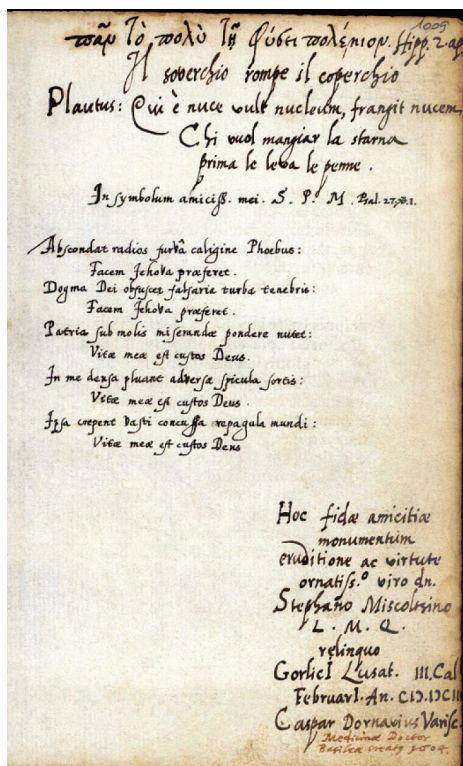 1009
πᾶν τὸ πολὺ τῇ φύσει πολέμιον. Hipp. 2. ap
Il soverchio rompe il coperchio
Plautus: Qui è nuce vult nucleum, frangit nucem
Chi vuol mangiar la starna
prima le leva le penne.
In symbolum amiciss. mei. S. P. M. Psal. 27. 1.
Abscondat radios furvâ caligine Phoebus:
Facem Jehova præferet.
Dogma Dei obfuscet falsaria turba tenebris:
Facem Jehova præferet.
Patria sub molis miserandæ pondere nutet:
Vitæ meæ est custos Deus.
In me densa pluant adversæ spicula sortis:
Vitæ meæ est custos Deus.
Ipsa crepent vasti concussa repagula mundi:
Vitæ meæ est custos Deus
Hoc fidæ amicitiæ
monumentum
eruditione ac virtute
ornatiss.º viro dn.
Stephano Miscoltsino
L. M. Q.
relinquo
GorlicI Lusat. III. Cal
FebruarI. An. CIↃ.IↃCII
Caspar Dornavius Varisc.
Medicinæ Doctor
Basileæ creatq 1604.